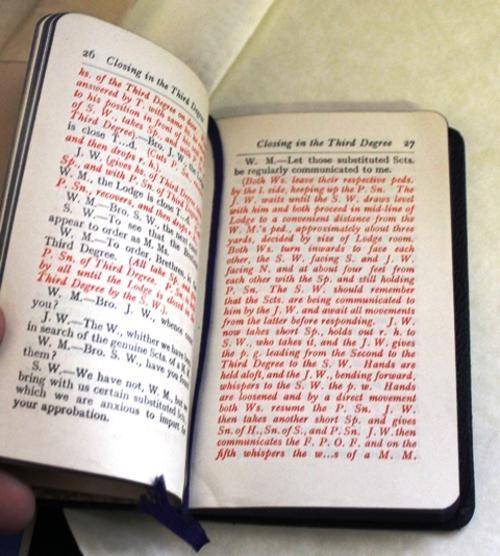 26 Closing in the Third Degree
hs. of the Third Degree on
answered by T. with
to his position in front of
of S. W., takes Sp. and
Third Degree)—Bro. J. W., the
is close T...d. (Cuts
and then drops r. h.)
J. W. (gives hs. of Third Degree
Sp. and with Pn. Sn. of Third
W. M., the Lodge is close T...d.
P. Sn., recovers, and then drops
W. M.—Bro. S. W., the next
S. W.—To see that the
appear to order as M. M.
W. M.—To order, Brethren, in
Third Degree. (All take Sp. and
P. Sn. of Third Degree. P. Sn.
by all until the Lodge is
Third Degree by the S. W.).
W. M.—Bro. J. W., whence
you?
J. W.—The W., whither we have
in search of the genuine Scts. of a M. M.
W. M.—Bro. S. W., have you
them?
S. W.—We have not, W. M., but
bring with us certain substituted
which we are anxious to impart
your approbation.
Closing in the Third Degree 27
W. M.—Let those substituted Scts.
be regularly communicated to me.
(Both Ws. leave their respective peds.
by the l. side, keeping up the P. Sn. The
J. W. waits until the S. W. draws level
with him and both proceed in mid-line of
Lodge to a convenient distance from the
W. M.'s ped., approximately about three
yards, decided by size of Lodge room.
Both Ws. turn inwards to face each
other, the S. W. facing S. and J. W.
facing N. and at about four feet from
each other with the Sp. and still holding
P. Sn. The S. W. should remember
that the Scts. are being communicated to
him by the J. W. and await all movements
from the latter before responding. J. W.
now takes short Sp., holds out r. h. to
S. W., who takes it, and the J. W. gives
the p. g. leading from the Second to the
Third Degree to the S. W. Hands are
held aloft, and the J. W., bending forward,
whispers to the S. W. the p. w. Hands
are loosened and by a direct movement
both Ws. resume the P. Sn. J. W.
then takes another short Sp. and gives
Sn. of H., Sn. of S., and P. Sn. J. W. then
communicates the F. P. O. F. and on the
fifth whispers the w...s of a M. M.